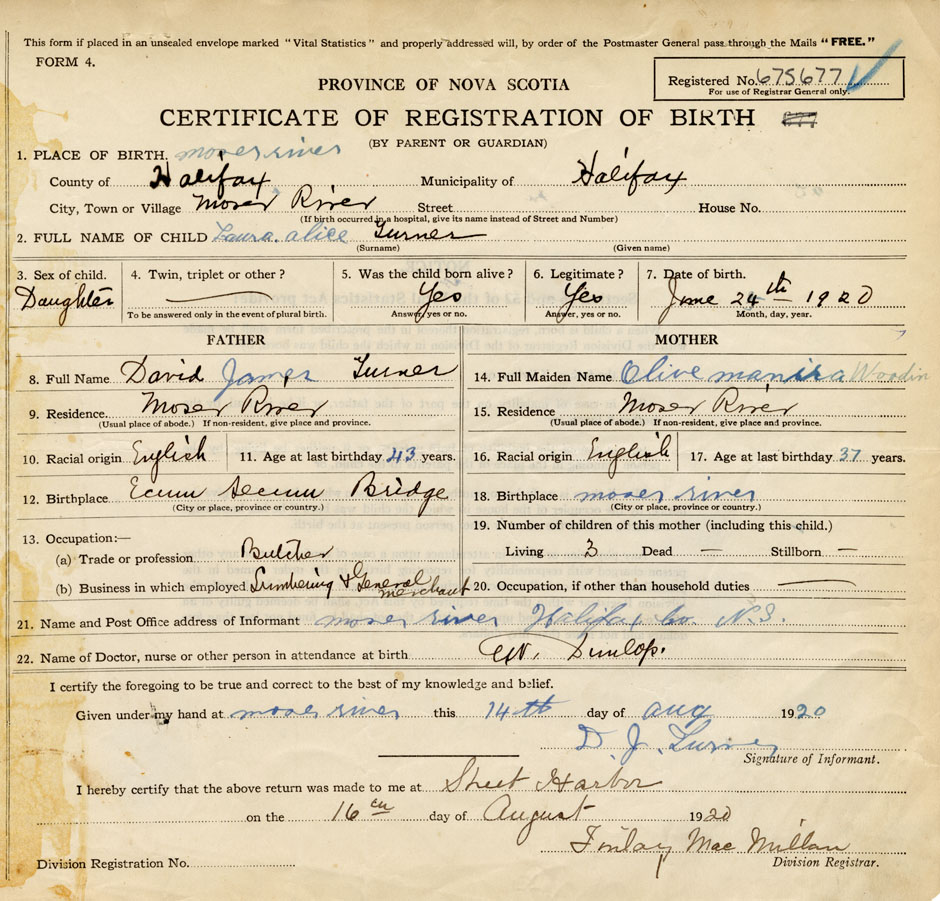 This form if placed in an unsealed envelope marked "Vital Statistics" and properly addressed will, by order of the Postmaster General pass through the Mails "FREE."
FORM 4.
Registered No. 675677
For use of Registrar General only.
PROVINCE OF NOVA SCOTIA
CERTIFICATE OF REGISTRATION OF BIRTH
(BY PARENT OR GUARDIAN)
1. PLACE OF BIRTH. moser river
County of Halifax Municipality of Halifax
City, Town or Village Moser River Street House No.
(If birth occurred in a hospital, give its name instead of Street and Number)
2. FULL NAME OF CHILD Laura. alice Turner
(Surname) (Given name)
3. Sex of child. 4. Twin, triplet or other? 5. Was the child born alive? 6. Legitimate? 7. Date of birth.
Daughter — Yes Yes June 24th 1920
To be answered only in the event of plural birth. Answer, yes or no. Answer, yes or no. Month, day, year.
FATHER MOTHER
8. Full Name David James Turner 14. Full Maiden Name Olive manira Woodin
9. Residence. Moser River 15. Residence Moser River
(Usual place of abode.) If non-resident, give place and province. (Usual place of abode.) If non-resident, give place and province.
10. Racial origin English 11. Age at last birthday 43 years. 16. Racial origin English 17. Age at last birthday 37 years.
12. Birthplace Ecum Secum Bridge 18. Birthplace moser river
(City or place, province or country.) (City or place, province or country.)
13. Occupation:— 19. Number of children of this mother (including this child.)
(a) Trade or profession Butcher Living 3 Dead — Stillborn —
(b) Business in which employed Lumbering & General merchant 20. Occupation, if other than household duties —
21. Name and Post Office address of Informant moser river Halifax Co. N.S.
22. Name of Doctor, nurse or other person in attendance at birth Dunlop.
I certify the foregoing to be true and correct to the best of my knowledge and belief.
Given under my hand at moser river this 14th day of aug 1920
D. J. Turner
Signature of Informant.
I hereby certify that the above return was made to me at Sheet Harbor
on the 16 day of August 1920
Finlay Mac Millan
Division Registration No. Division Registrar.